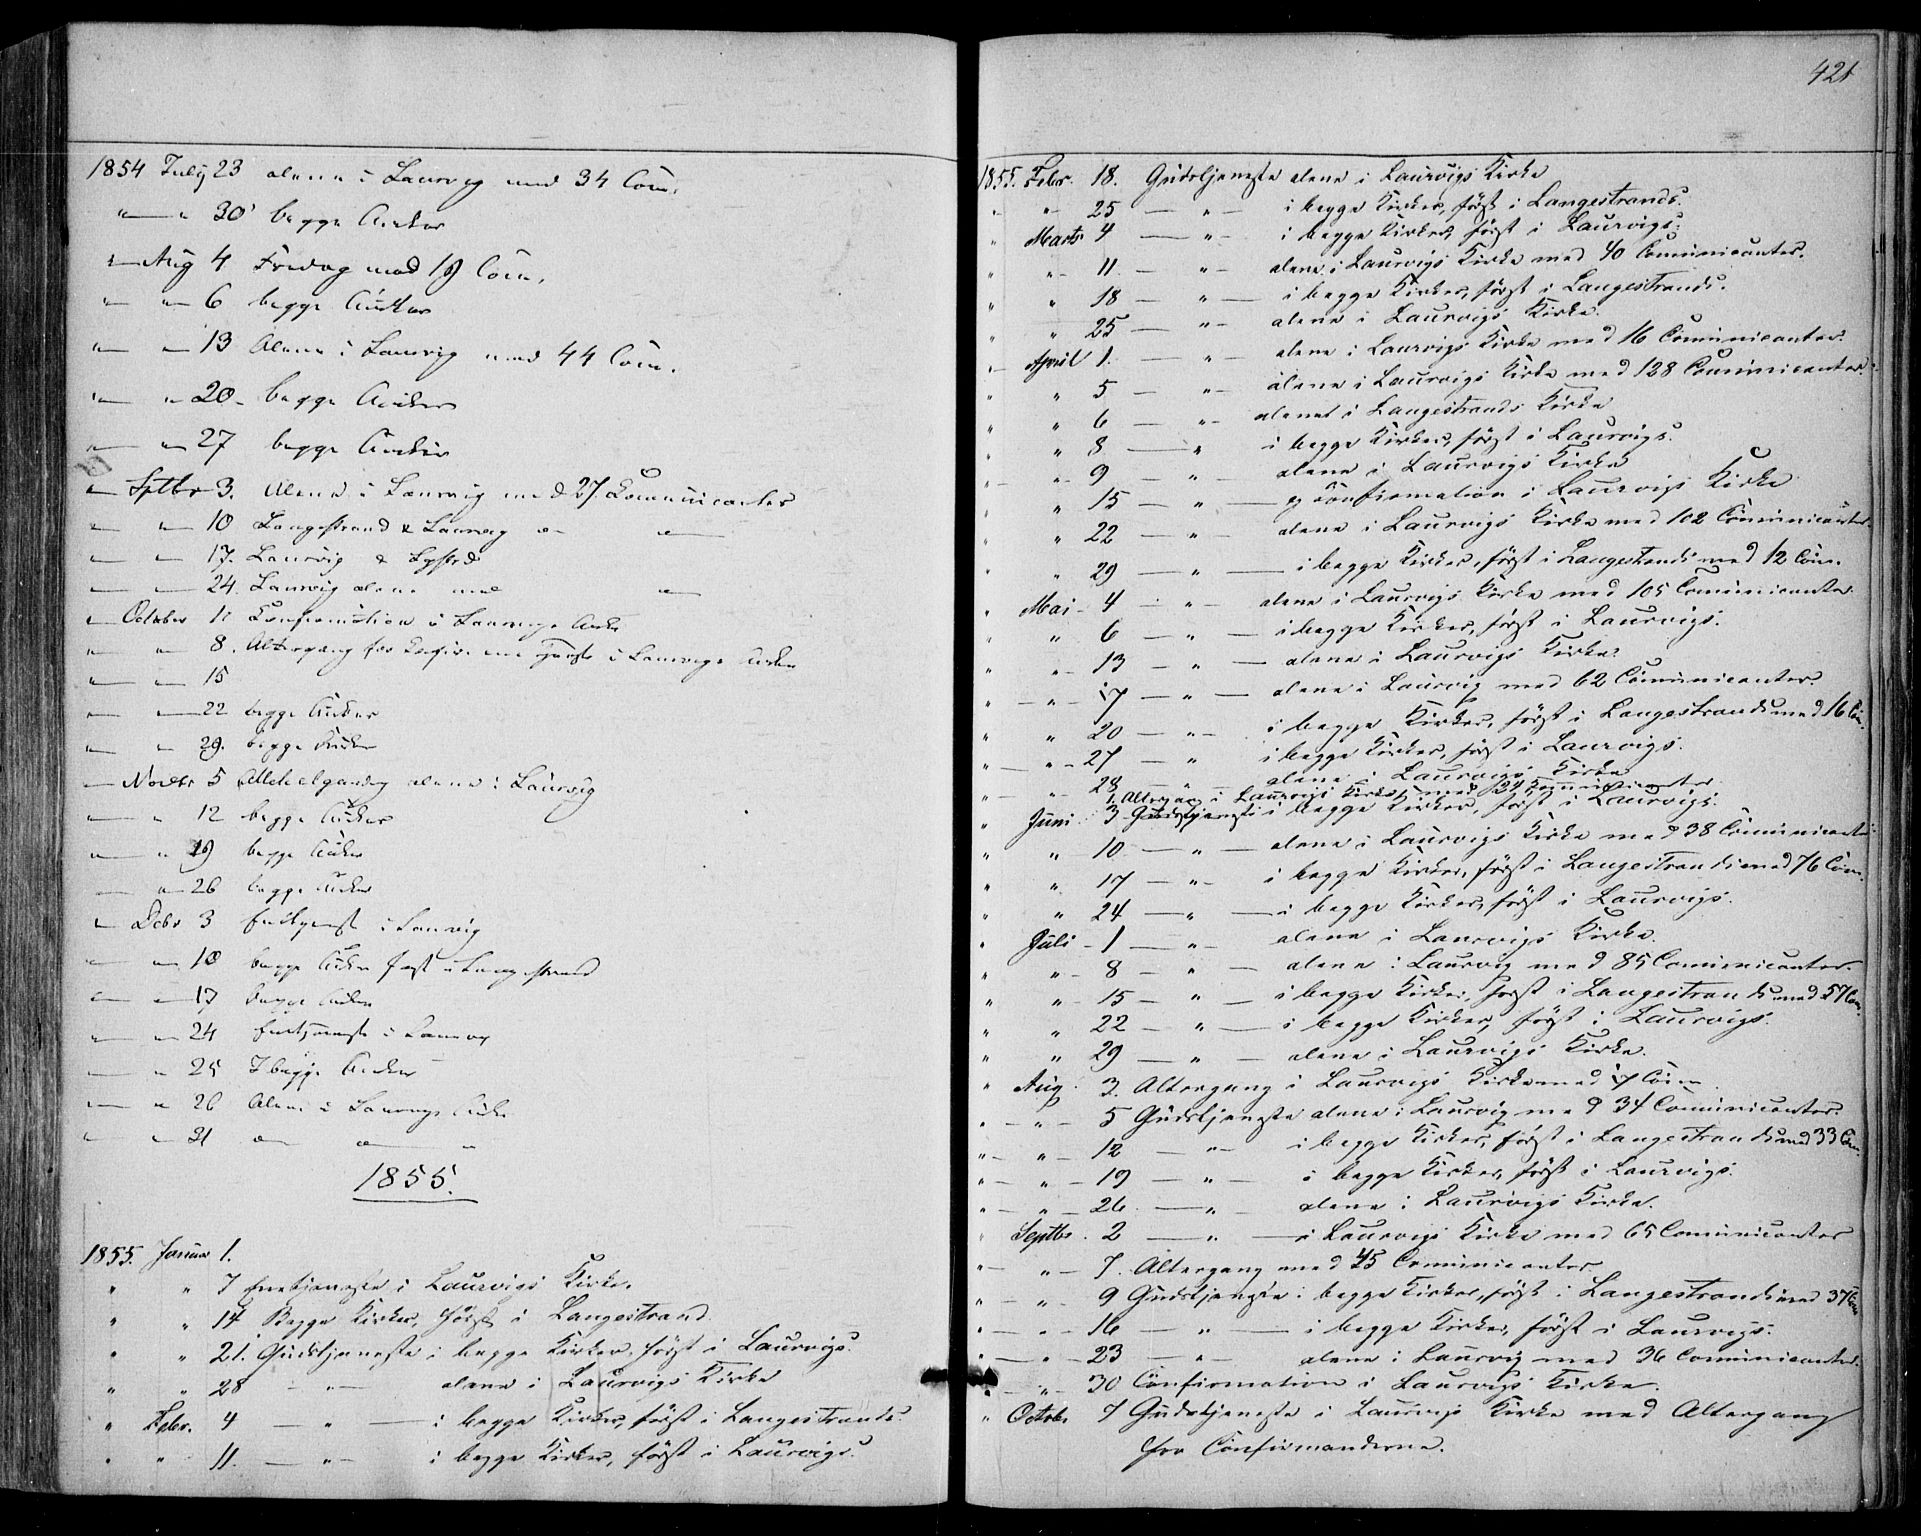 1854 July 23 alene i Laurvig med 34 Com.
" " 30 begge Kirker
" Aug 4 Fredag med 19 Com.
" " 6 begge Kirker
" " 13 Alene i Laurvig med 44 Com.
" " 20 begge Kirker
" " 27 begge Kirker
" Septbr 3. Alene i Laurvig med 27 Communicanter
" " 10 Langestrand & Laurvig
" " 17. Laurvig &
" " 24. Laurvig alene med
" October 1. Confirmation i Laurvigs Kirke
" " 8. Altergang for Confir. i Laurvigs Kirke
" " 15
" " 22 begge Kirker
" " 29. begge Kirker
" Novbr 5 Allehelgensdag alene i Laurvig
" " 12 begge Kirker
" " 19 begge Kirker
" " 26 begge Kirker
" Debr 3 Enetjenest i Laurvig
" " 10 begge Kirker først i Langestrand
" " 17 begge Kirker
" " 24 Enetjeneste i Laurvig
" " 25 I begge Kirker
" " 26 Alene i Laurvigs Kirke
" " 31 " " "
1855.
1855. Januar 1.
" " 7 Enetjeneste i Laurvigs Kirke.
" " 14 Begge Kirker, først i Langestrand.
" " 21. Gudstjeneste i begge Kirker, først i Laurvigs.
" " 28 — " — alene i Laurvigs Kirke
" Febr. 4 — " — i begge Kirker, først i Langestrands.
" " 11. — " — i begge Kirker, først i Laurvigs.
421
1855. Febr. 18. Gudstjeneste alene i Laurvigs Kirke
" " 25 — " — i begge Kirker, først i Langestrands.
" Marts 4 — " — i begge Kirker, først i Laurvigs.
" " 11 — " — alene i Laurvigs Kirke med 40 Communicanter.
" " 18 — " — i begge Kirker, først i Langestrands.
" " 25 — " — alene i Laurvigs Kirke.
" April 1. — " — alene i Laurvigs Kirke med 16 Communicanter.
" " 5 — " — alene i Laurvigs Kirke med 128 Communicanter.
" " 6 — " — alenet i Langestrands Kirke
" " 8 — " — i begge Kirker, først i Laurvigs.
" " 9 — " — alene i Laurvigs Kirke
" " 15 — " — og Confirmation i Laurvigs Kirke
" " 22 — " — alene i Laurvigs Kirke med 102 Communicanter
" " 29 — " — i begge Kirker, først i Langestrands med 12 Com.
" Mai 4 — " — alene i Laurvigs Kirke med 105 Communicanter
" " 6 — " — i begge Kirker, først i Laurvigs.
" " 13 — " — alene i Laurvigs Kirke.
" " 17 — " — alene i Laurvig med 62 Communicanter.
" " 20 — " — i begge Kirker, først i Langestrands med 16 Com.
" " 27 — " — i begge Kirker, først i Laurvigs.
" " 28 — " — alene i Laurvigs Kirke
1. Altergang i Laurvigs Kirke med 24 Communicanter.
" Juni 3 Gudstjeneste i begge Kirker, først i Laurvigs.
" " 10 — " — alene i Laurvigs Kirke med 38 Communicanter
" " 17 — " — i begge Kirker, først i Langestrands med 76 Com.
" " 24 — " — i begge Kirker, først i Laurvigs.
" Juli 1 — " — alene i Laurvigs Kirke.
" " 8 — " — alene i Laurvig med 85 Communicanter.
" " 15 — " — i begge Kirker, først i Langestrands med 57 Com.
" " 22 — " — i begge Kirker, først i Laurvigs.
" " 29 — " — alene i Laurvigs Kirke.
" Aug. 3. Altergang i Laurvigs Kirke med 17 Com.
" " 5 Gudstjeneste alene i Laurvig med 34 Communicanter.
" " 12 — " — i begge Kirker, først i Langestrands med 33 Com.
" " 19 — " — i begge Kirker, først i Laurvigs.
" " 26 — " — alene i Laurvigs Kirke.
" Septbr. 2 — " — i Laurvigs Kirke med 65 Communicanter
" " 7. Altergang med 45 Communicanter
" " 9 Gudstjeneste i begge Kirker, først i Langestrands med 37 Com
" " 16 — " — i begge Kirker, først i Laurvigs.
" " 23 — " — alene i Laurvig med 36 Communicanter.
" " 30 Confirmation i Laurvigs Kirke.
" Octobr 7 Gudstjeneste i Laurvigs Kirke med Altergang
for Confirmanderne.